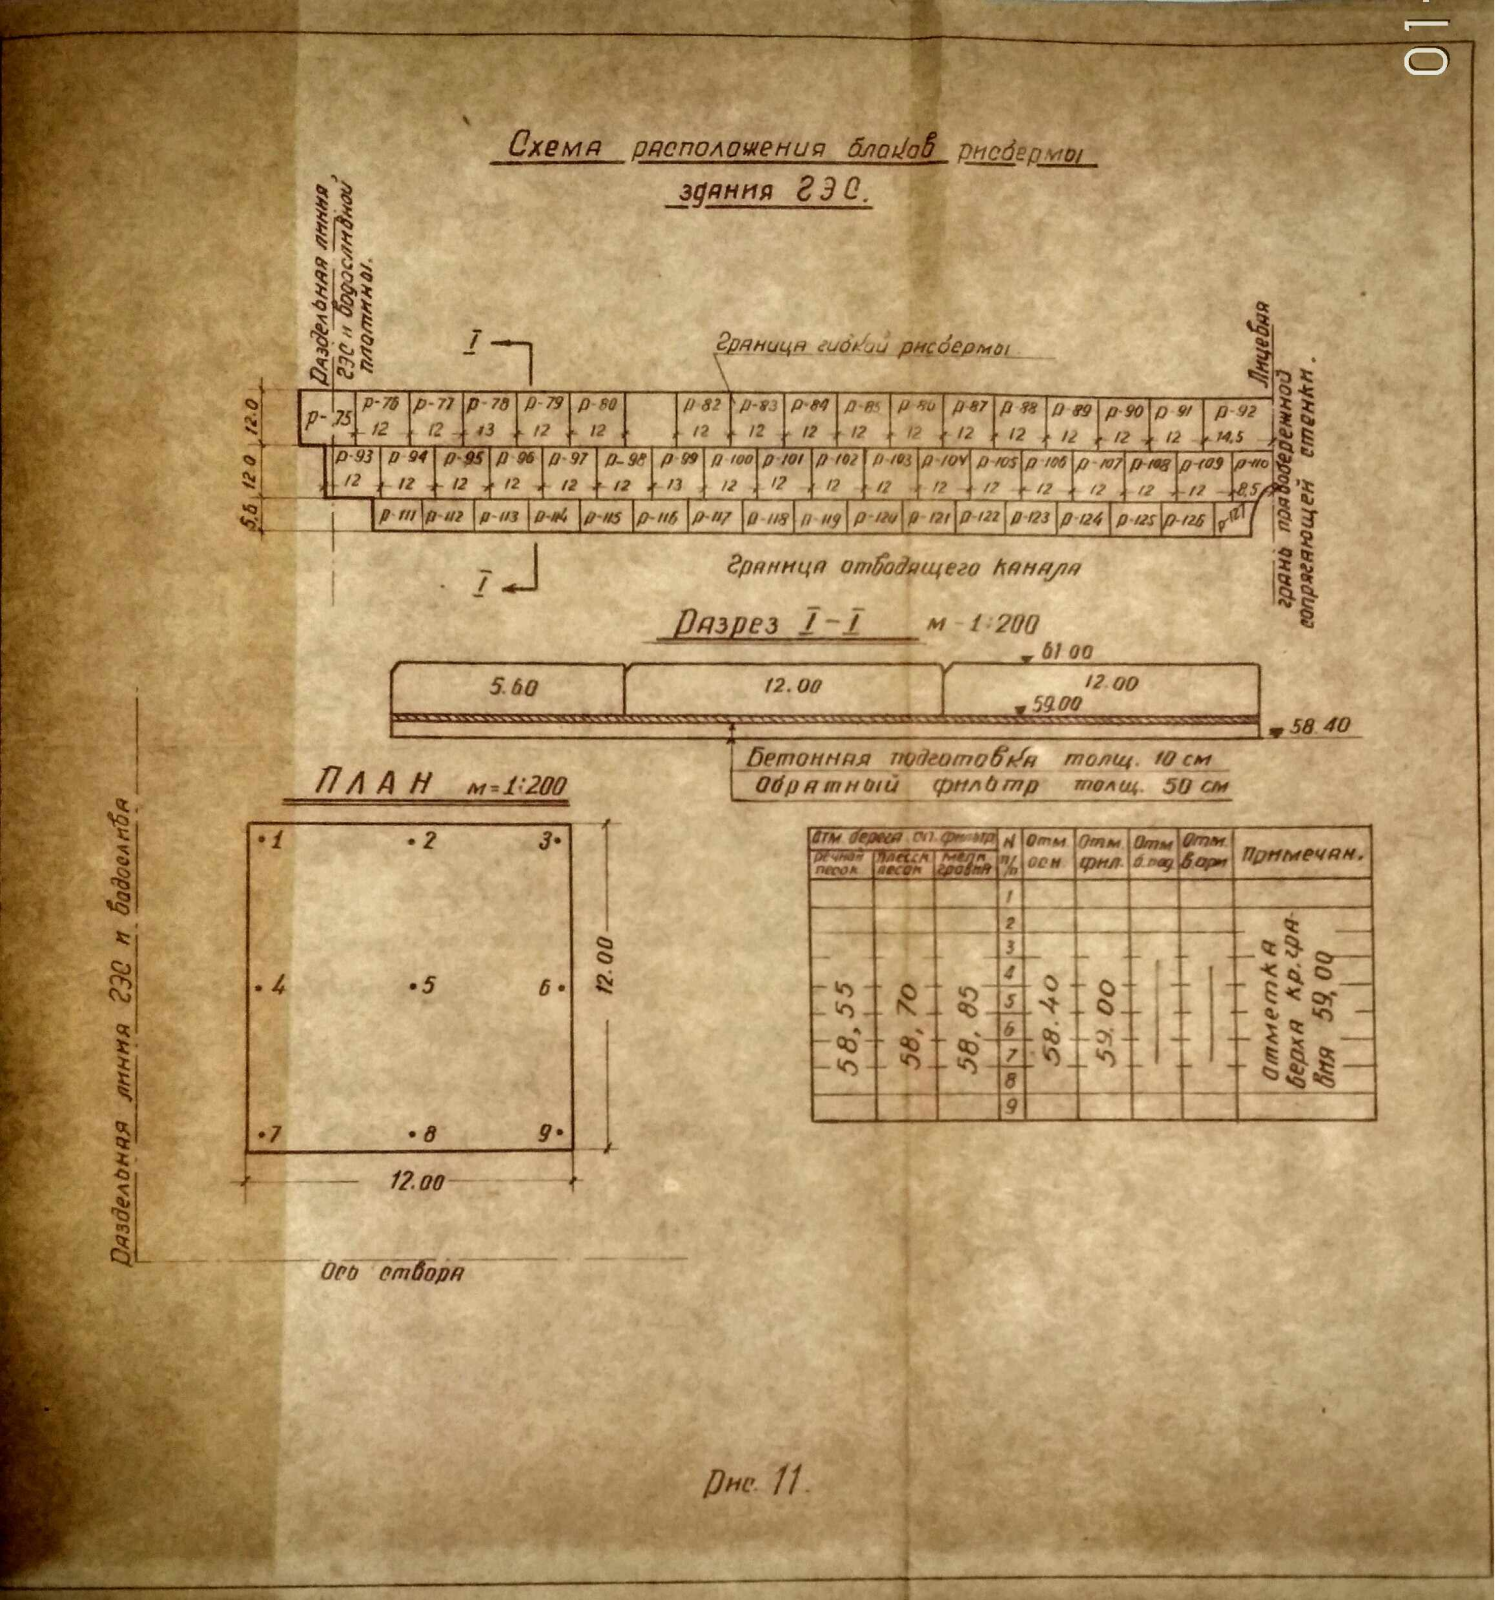 01-
Схема расположения блоков рисбермы
здания ГЭС.
Раздельная линия
ГЭС и водосливной
плотины.
I
Граница гибкой рисбермы
Лицевая
грань правобережной
сопрягающей стенки.
12.0
р-75 р-76 р-77 р-78 р-79 р-80 р-82 р-83 р-84 р-85 р-86 р-87 р-88 р-89 р-90 р-91 р-92
12 12 13 12 12 12 12 12 12 12 12 12 12 12 12 14,5
12.0
р-93 р-94 р-95 р-96 р-97 р-98 р-99 р-100 р-101 р-102 р-103 р-104 р-105 р-106 р-107 р-108 р-109 р-110
12 12 12 12 12 12 13 12 12 12 12 12 12 12 12 12 12 8,5
5,6
р-111 р-112 р-113 р-114 р-115 р-116 р-117 р-118 р-119 р-120 р-121 р-122 р-123 р-124 р-125 р-126 р-127
I
Граница отводящего канала
Разрез I-I м-1:200
61.00
5.60 12.00 12.00
59.00
58.40
Бетонная подготовка толщ. 10 см
Обратный фильтр толщ. 50 см
ПЛАН м=1:200
1 2 3
4 5 6
7 8 9
12.00
12.00
Раздельная линия ГЭС и водослива
Ось створа
отм. верха сл. фильтр N п/п Отм. осн. Отм. фил. Отм. б.под Отм. Примечан.
речной песок песок мелк. гравий
1
2
3
4
5
6
7
8
9
58,55 58,70 58,85 58.40 59.00
отметка
верха кр.гра-
вия 59,00
Рис. 11.